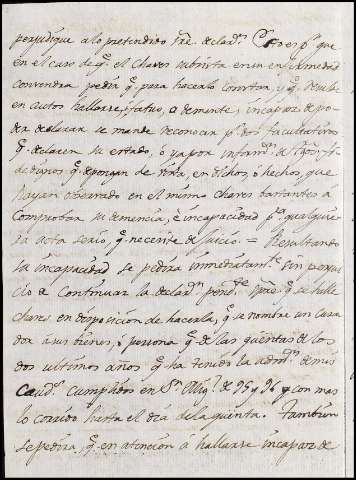 perjudique a lo pretendido sre. declaron. Creo es pr. que
en el caso de q.e el Chaves subsista en su enfermedad
convendra pedir q.e para hacerlo constar, y q.e resulte
en autos hallarse, fatuo, o demente, incapaz de po-
der declarar se mande reconocer p.r dos facultativos
q.e declaren su estado, o ya por inform.n de tgos.
de dignos q.e depongan de vista, en dichos, o hechos, que
hayan observado en el mismo Chares bastantes a
comprobar su demencia, e incapacidad p.a qualquie-
ra acto serio, q.e necesite de Juicio. = Resultando
la incapacidad se pedira inmediatam.te sin perjui-
cio de continuar la declar.n pend.te siempre q.e se halle
Chares en disposicion de hacerla, q.e se nombre un cura
dor a sus bienes, o persona q.e dé las quentas de los
dos ultimos años q.e ha tenido la adm.on de mis
caud.s cumplidos en S.n Mig.l de 95 y 96 y con mas
lo corrido hasta el dia de la quenta. Tambien
se pedira, q.e en atencion a hallarse incapaz de